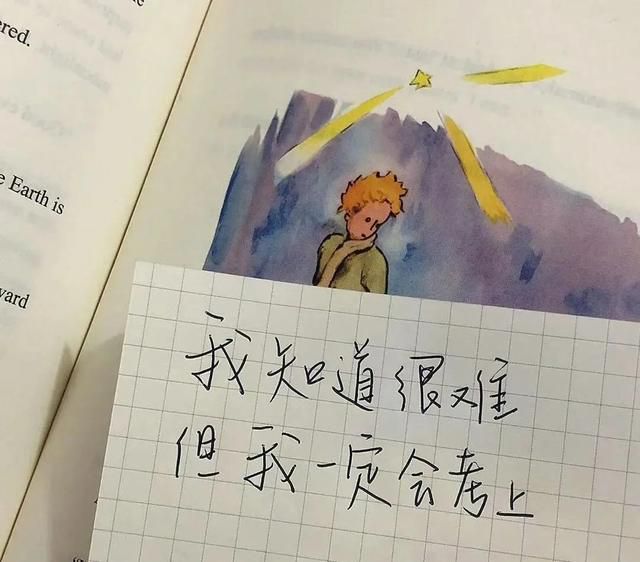 ered.
e Earth is
vard
我知道很难
但我一定会考上